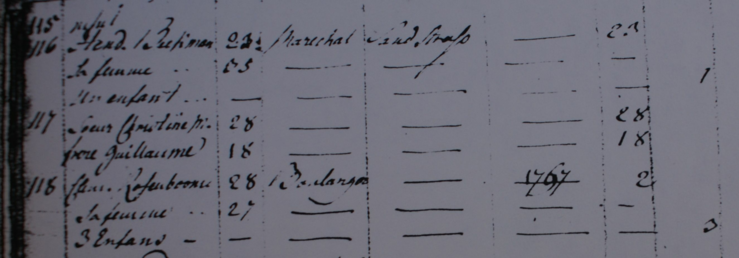 115
116 Hend. Buschman 23 Marechal Sand Straß 23
Sa femme .. 25 — — — —
Un enfant ... — — — — — 1
117 Soeur Christine 28 — — — 28
frere Guillaume 18 — — — 18
118 Rosenboom 28 Boulanger — 1767 2
Sa femme .. 27 — — — —
3 Enfans — — — — — — 3